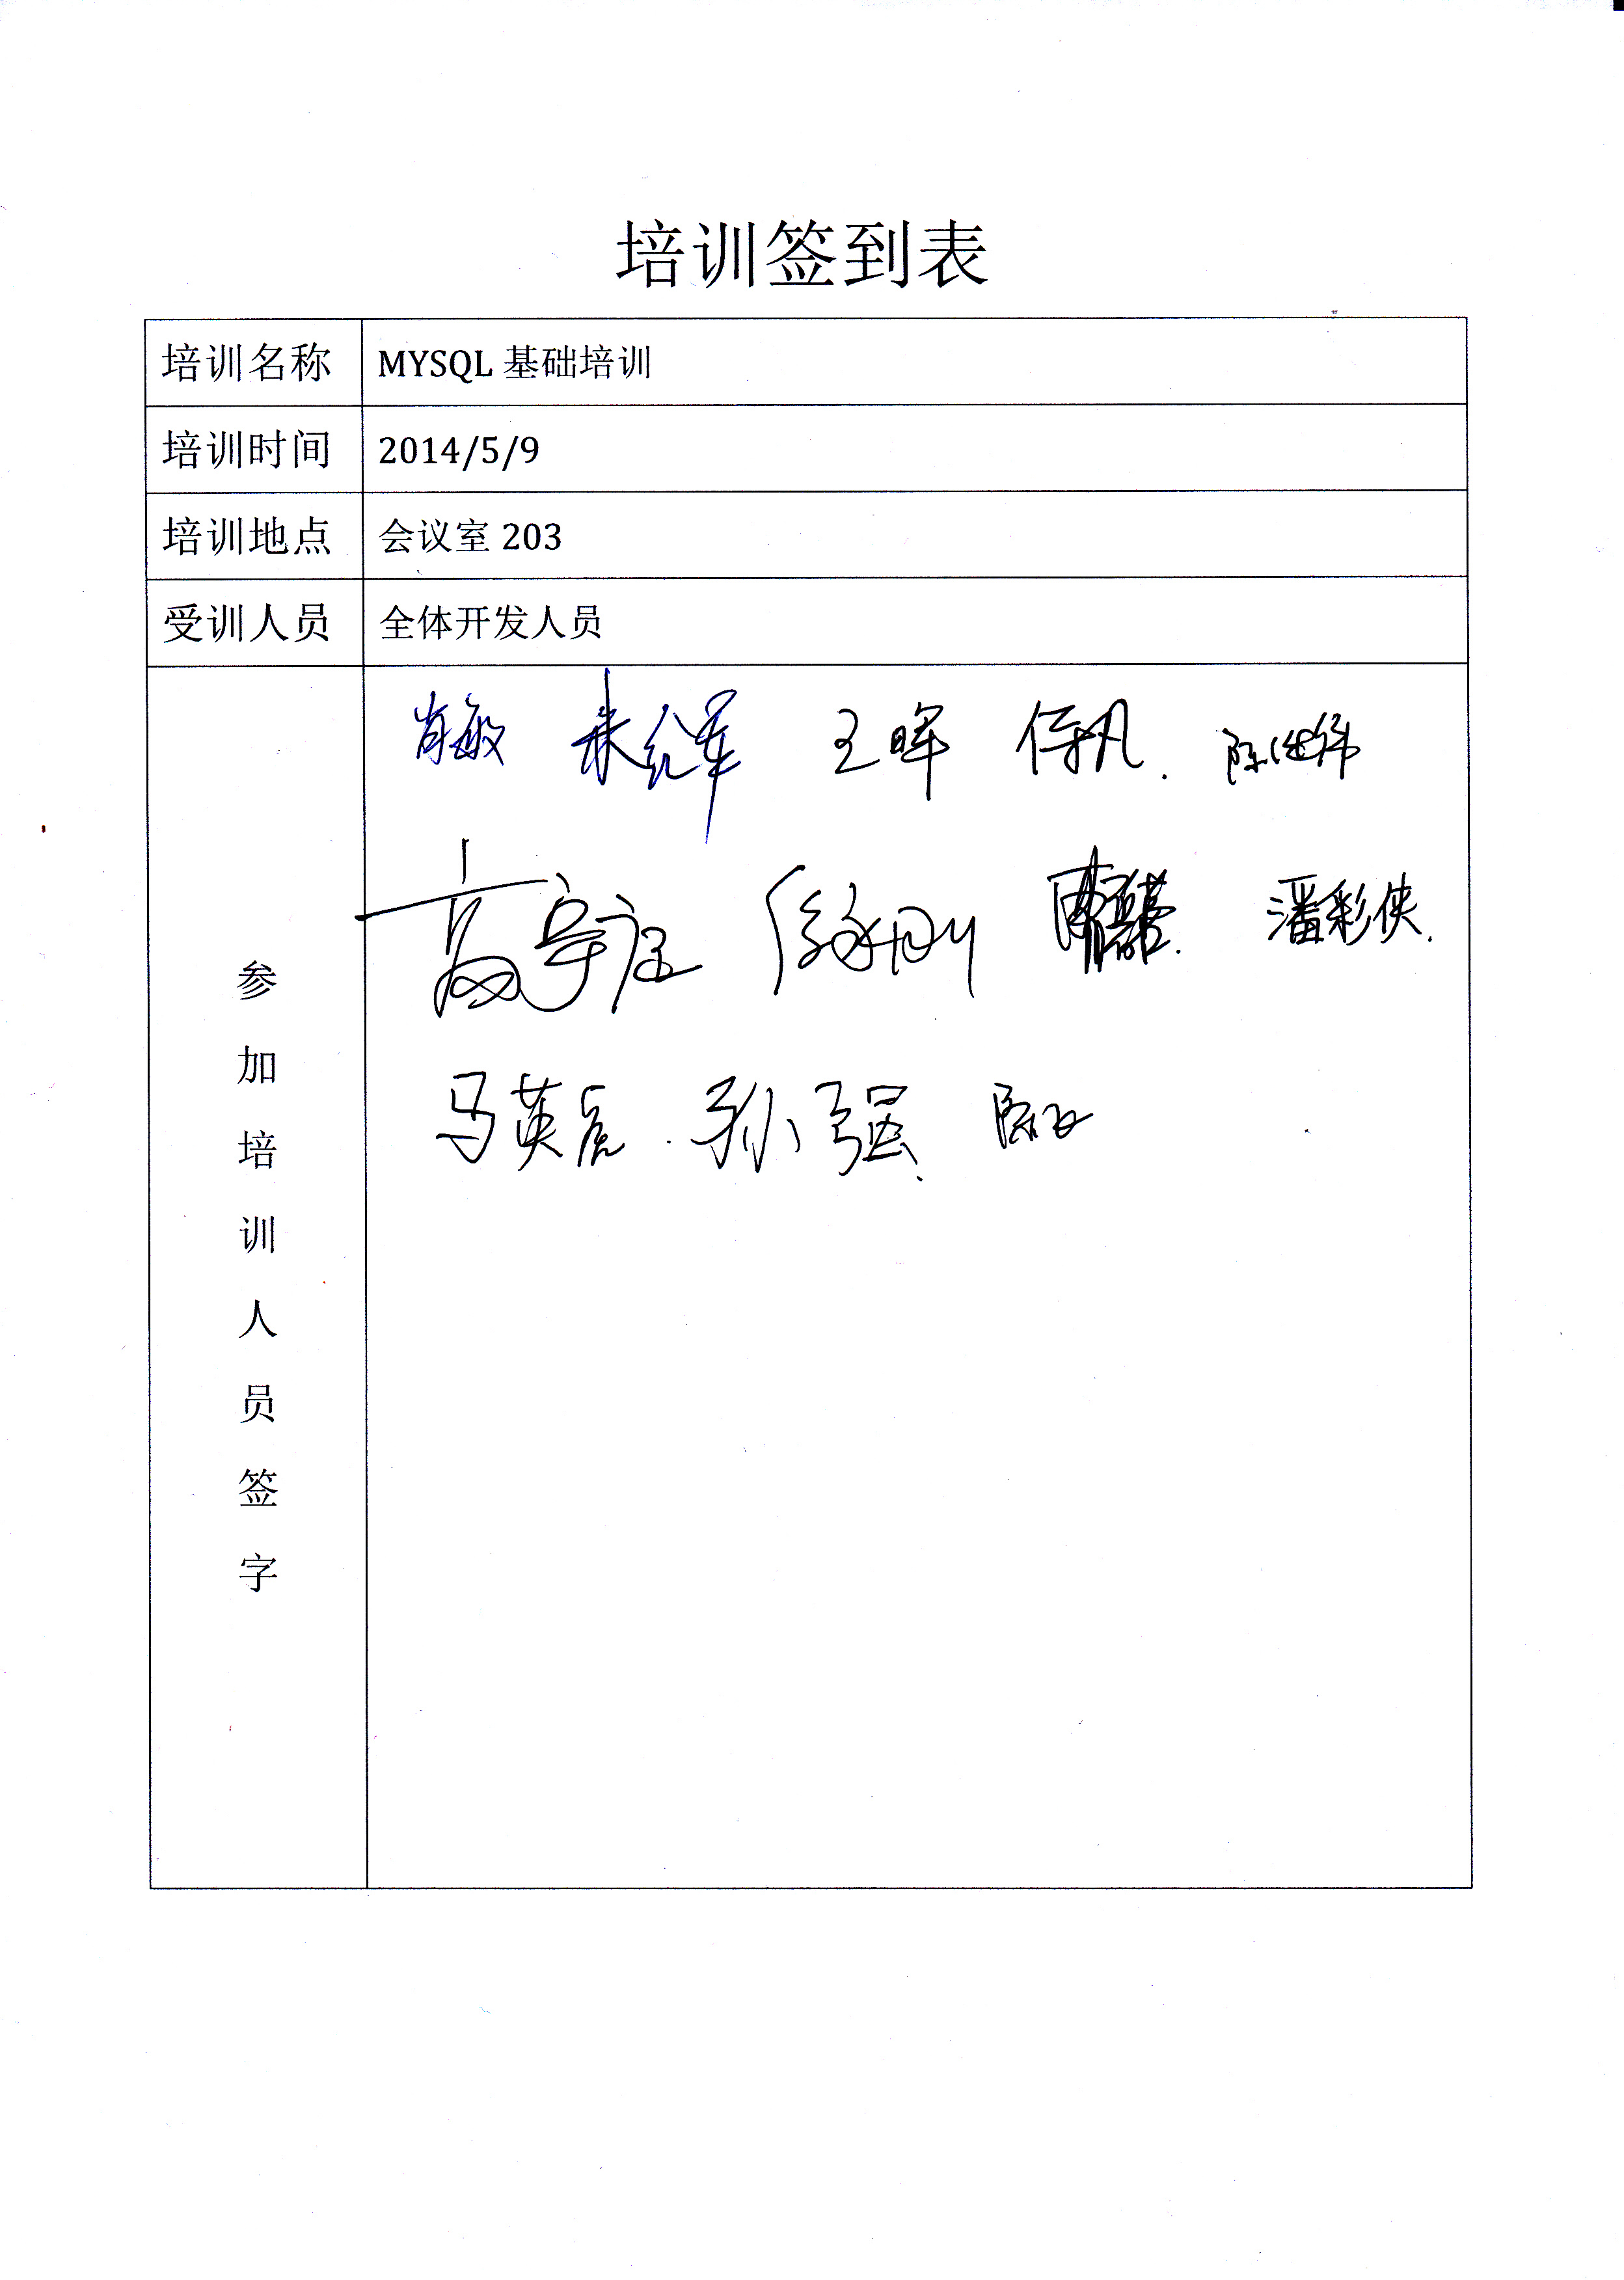 培训签到表
培训名称 MYSQL 基础培训
培训时间 2014/5/9
培训地点 会议室 203
受训人员 全体开发人员
参加培训人员签字
肖敏 朱红军 王晖
潘彩侠.
马英虎. 孙强